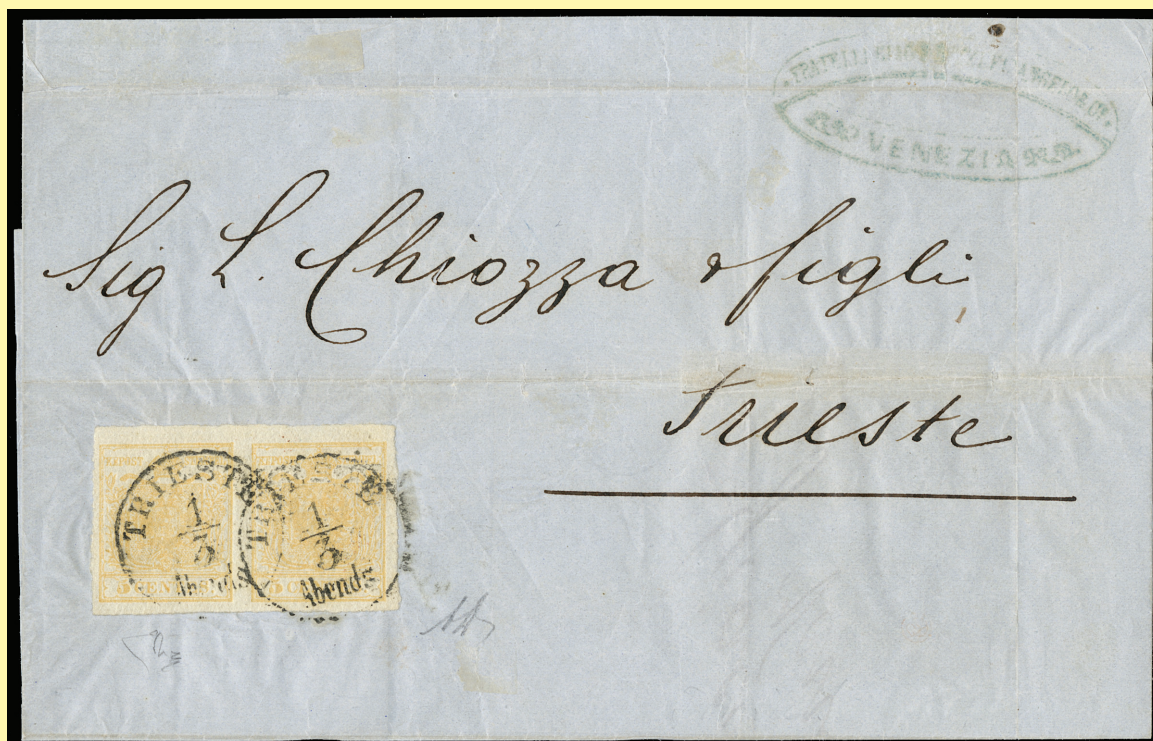 VENEZIA
Sig L. Chiozza & figli
Trieste
TRIESTE
1/3
Abends
TRIESTE
1/3
Abends
5 CENTES
5 C